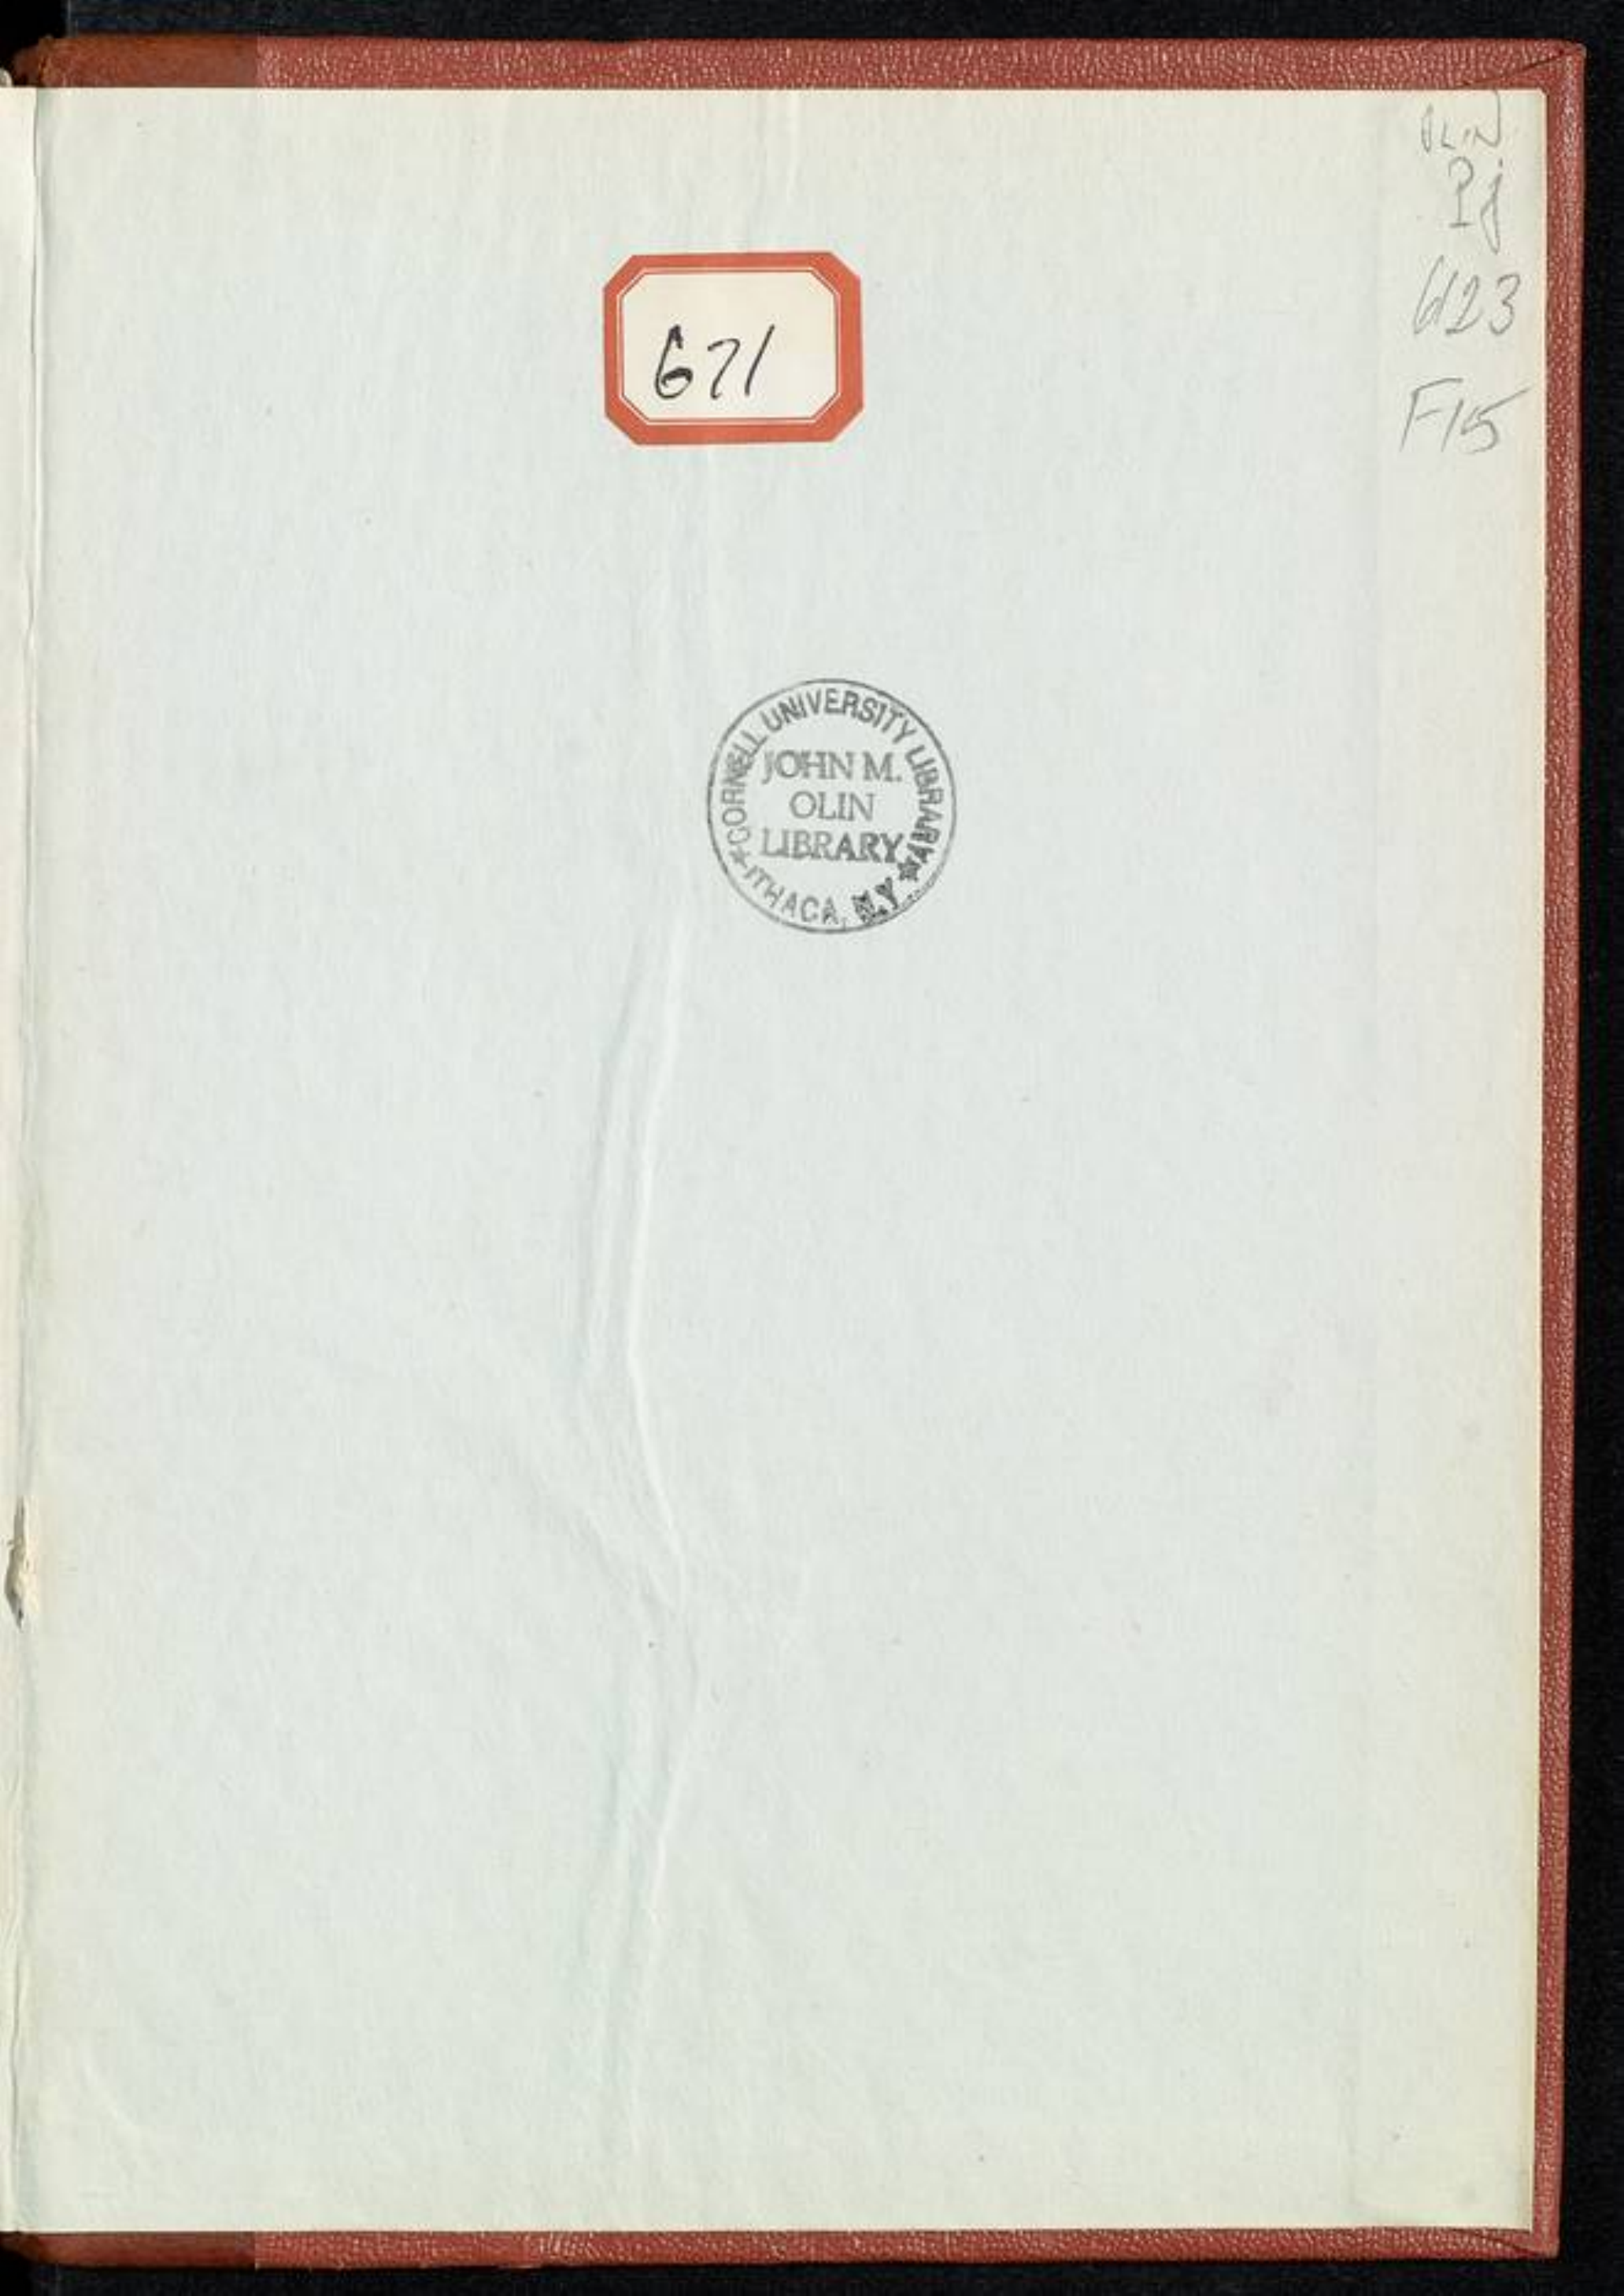 OLIN
Pj
6123
F15
671
CORNELL UNIVERSITY LIBRARY
JOHN M.
OLIN
LIBRARY
ITHACA, N.Y.